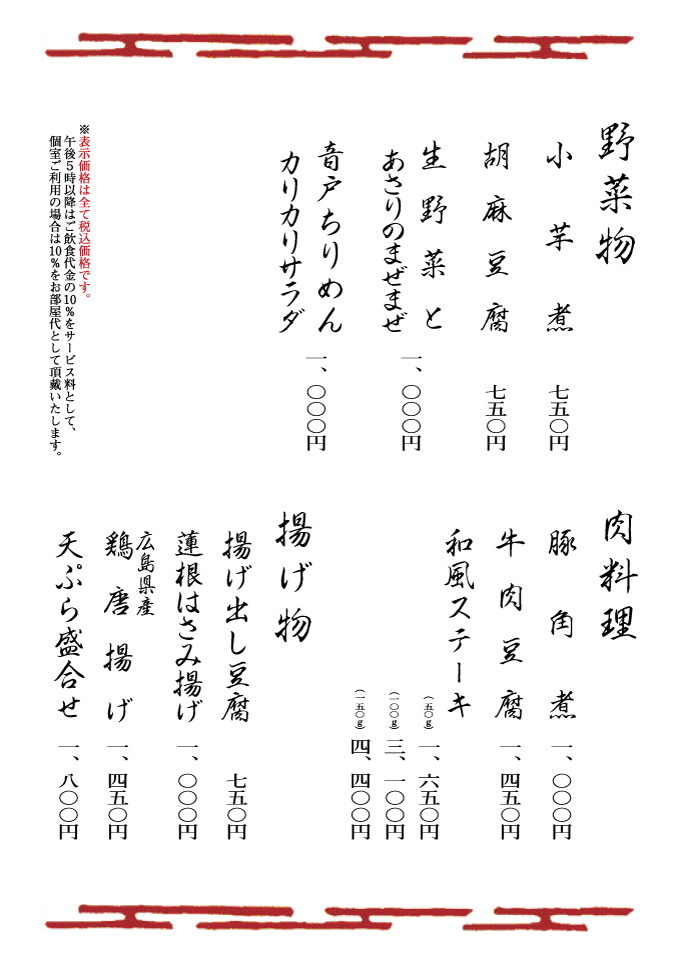 野菜物
小芋煮 七五〇円
胡麻豆腐 七五〇円
生野菜と
あさりのまぜまぜ 一、〇〇〇円
音戸ちりめん
カリカリサラダ 一、〇〇〇円
※表示価格は全て税込価格です。
午後5時以降はご飲食代金の10%をサービス料として、
個室ご利用の場合は10%をお部屋代として頂戴いたします。
肉料理
豚角煮 一、〇〇〇円
牛肉豆腐 一、四五〇円
和風ステーキ
(五〇g) 一、六五〇円
(一〇〇g) 三、一〇〇円
(一五〇g) 四、四〇〇円
揚げ物
揚げ出し豆腐 七五〇円
蓮根はさみ揚げ 一、〇〇〇円
広島県産
鶏唐揚げ 一、四五〇円
天ぷら盛合せ 一、八〇〇円